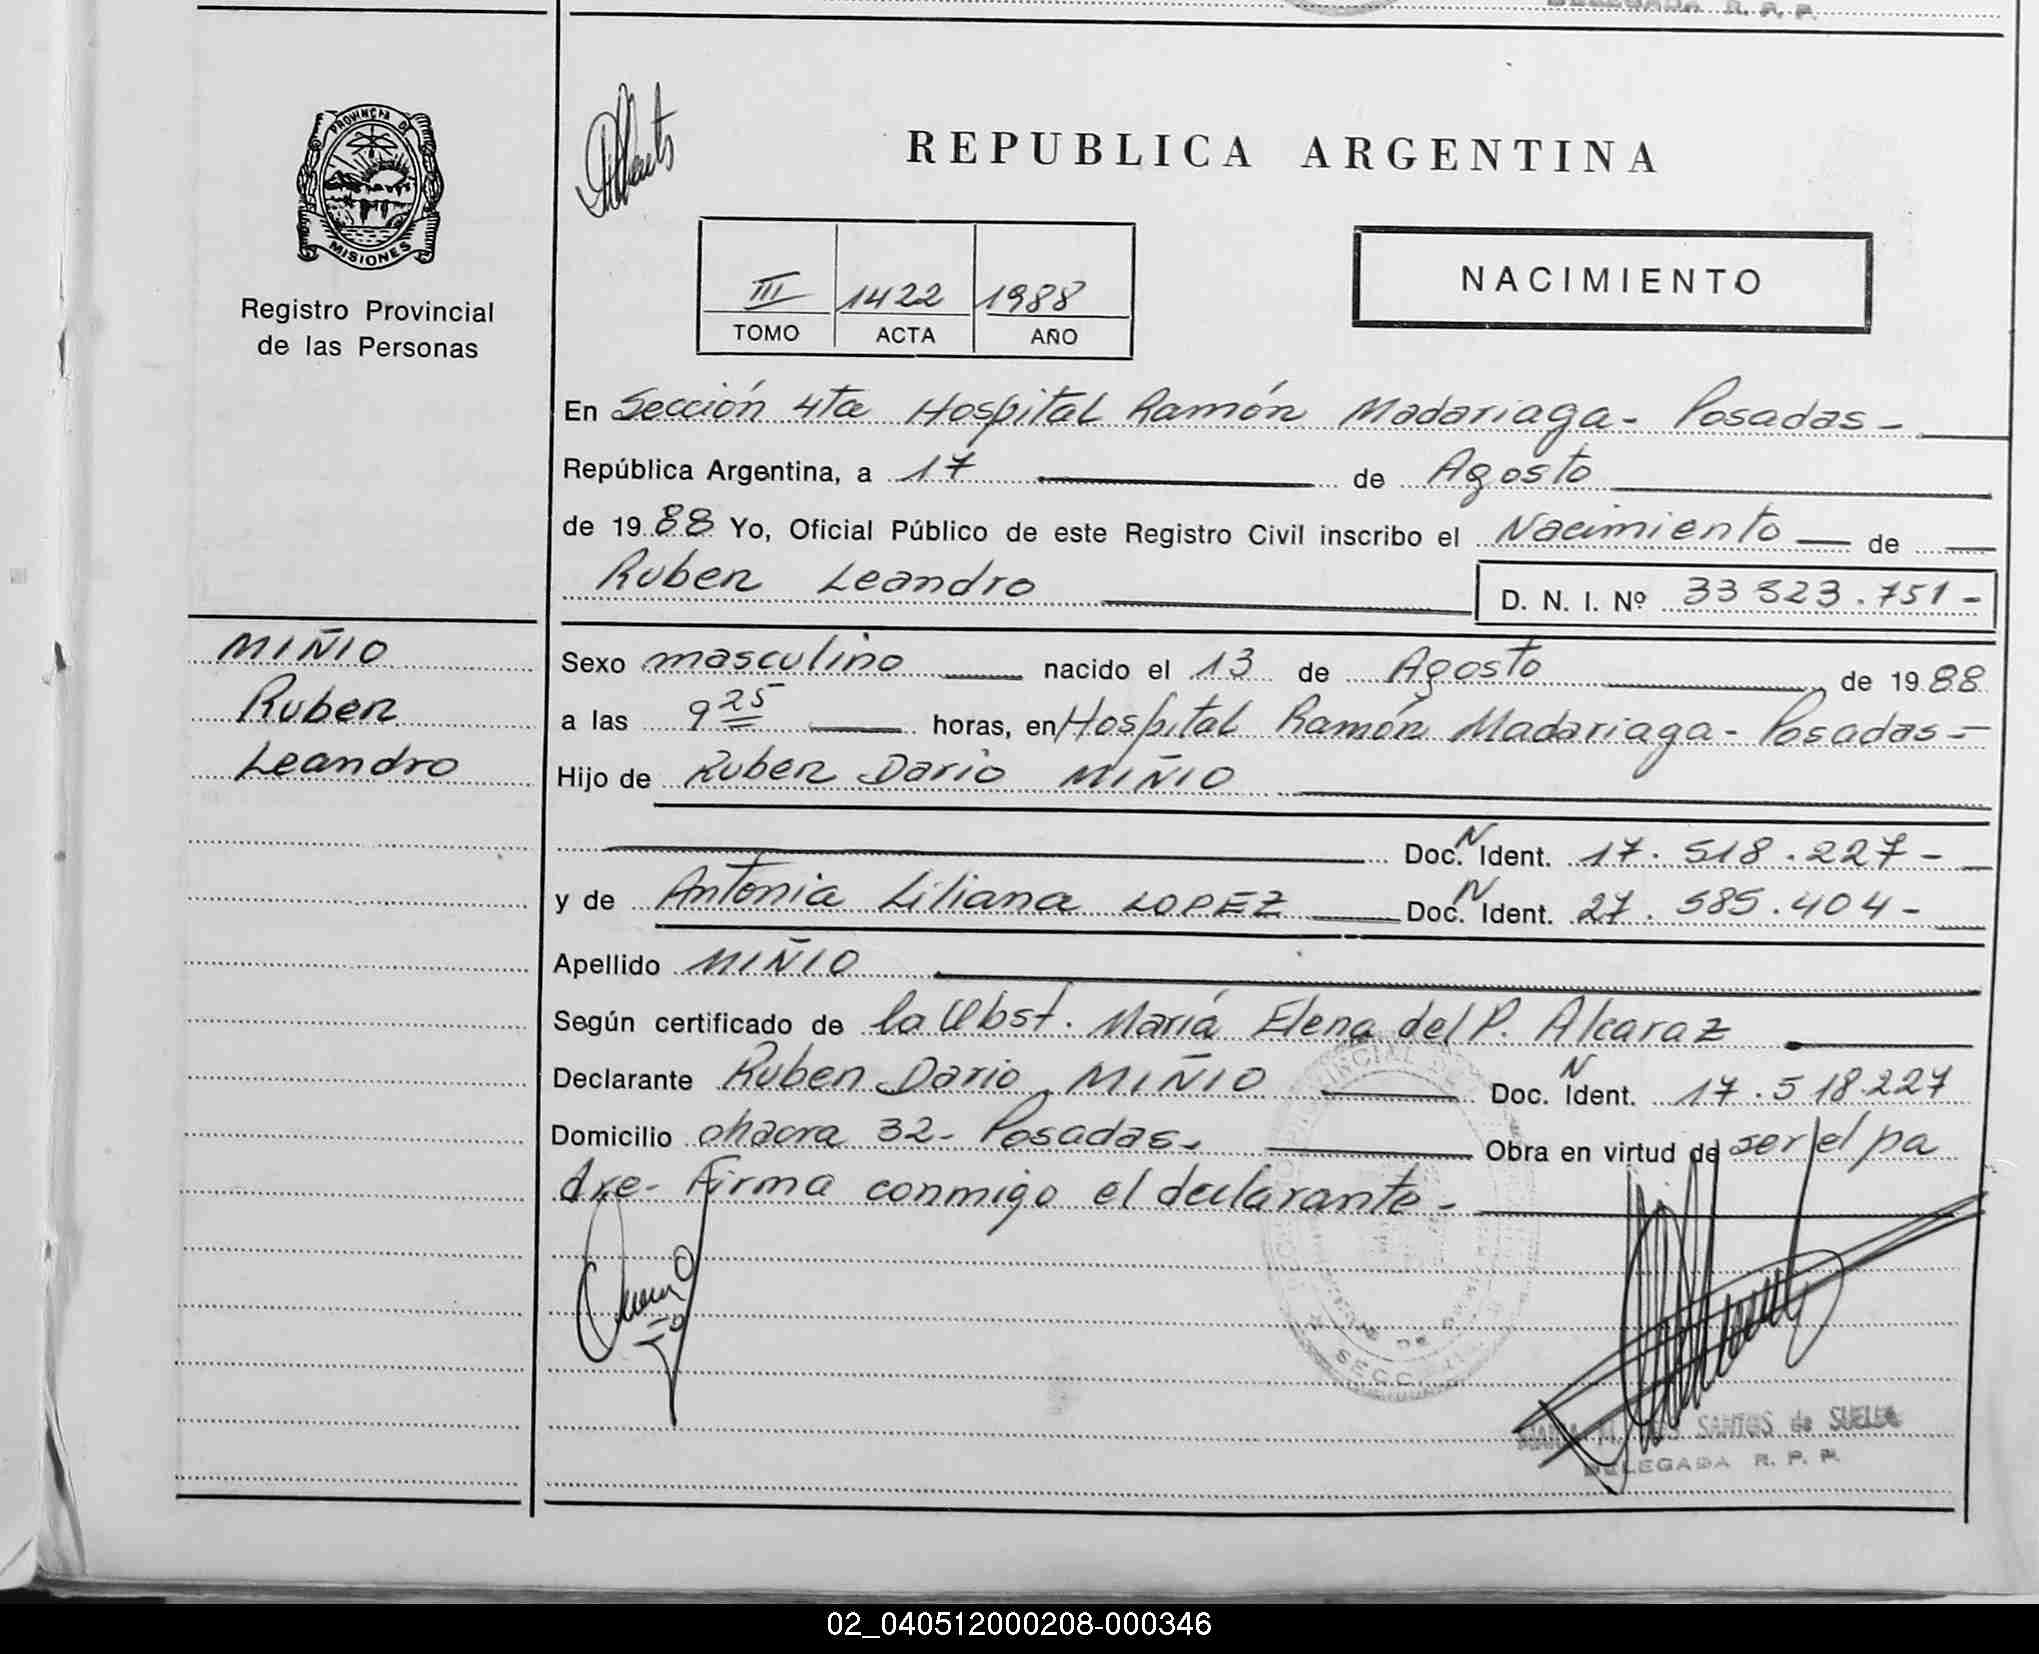 DELEGADA R. P. P.
PROVINCIA DE
MISIONES
Registro Provincial
de las Personas
REPUBLICA ARGENTINA
III 1422 1988
TOMO ACTA AÑO
NACIMIENTO
En Sección 4ta Hospital Ramón Madariaga - Posadas -
República Argentina, a 17 de Agosto
de 1988 Yo, Oficial Público de este Registro Civil inscribo el Nacimiento de
Ruben Leandro
D. N. I. Nº 33 323.751-
MIÑIO
Ruben
Leandro
Sexo masculino nacido el 13 de Agosto de 1988
a las 9 25 horas, en Hospital Ramón Madariaga - Posadas -
Hijo de Ruben Dario MIÑIO
Doc. N Ident. 17.518.227-
y de Antonia Liliana LOPEZ Doc. N Ident. 27.585.404-
Apellido MIÑIO
Según certificado de la Obst. María Elena del P. Alcaraz
Declarante Ruben Dario MIÑIO Doc. N Ident. 17.518.227
Domicilio chacra 32- Posadas. Obra en virtud de ser el pa
dre- Firma conmigo el declarante-
SANTOS de SUELA
DELEGADA R. P. P.
02_040512000208-000346